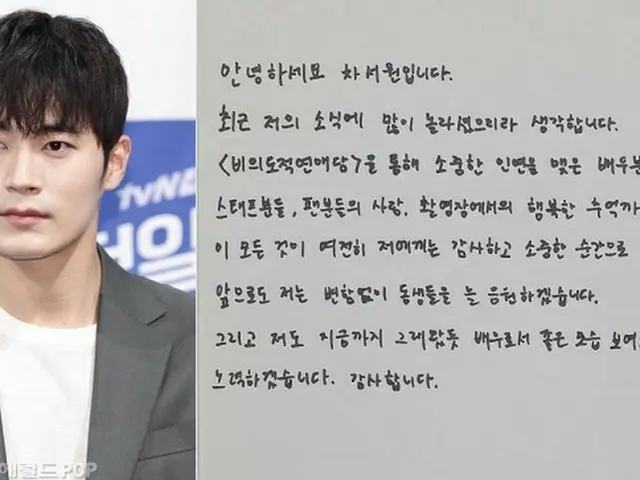 tvN D
헤럴드POP
안녕하세요 차서원입니다.
최근 저의 소식에 많이 놀라셨으리라 생각합니다.
<비의도적연애담>을 통해 소중한 인연을 맺은 배우분
스태프분들, 팬분들의 사랑, 촬영장에서의 행복한 추억까
이 모든 것이 여전히 저에게는 감사하고 소중한 순간으로
앞으로도 저는 변함없이 동생들을 늘 응원하겠습니다.
그리고 저도 지금까지 그래왔듯 배우로서 좋은 모습 보여
노력하겠습니다. 감사합니다.